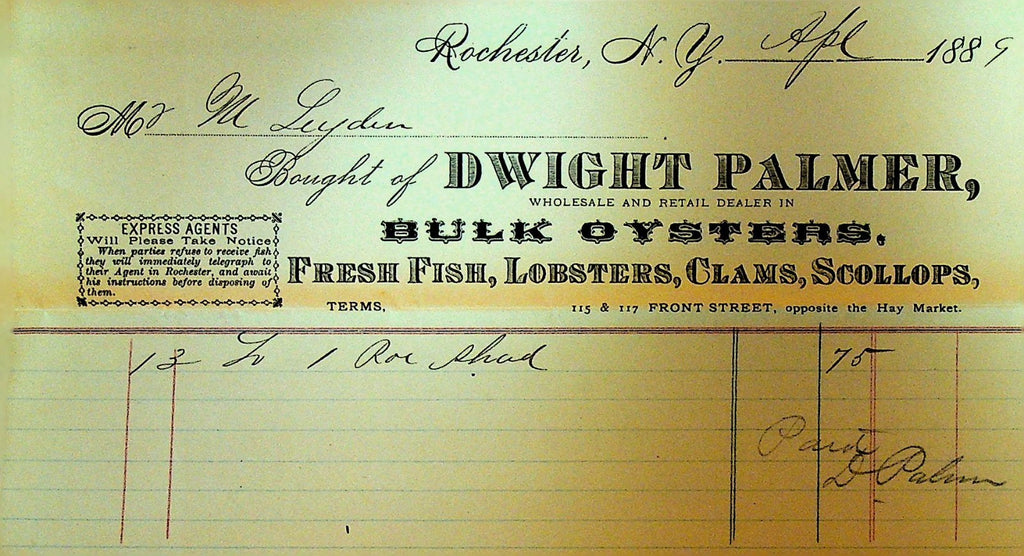 Rochester, N. Y. Apl 1889
Mr M Leyden
Bought of DWIGHT PALMER,
WHOLESALE AND RETAIL DEALER IN
BULK OYSTERS.
FRESH FISH, LOBSTERS, CLAMS, SCOLLOPS,
EXPRESS AGENTS
Will Please Take Notice
When parties refuse to receive fish
they will immediately telegraph to
their Agent in Rochester, and await
his instructions before disposing of
them.
TERMS, 115 & 117 FRONT STREET, opposite the Hay Market.
13 To 1 Roe Shad 75
Paid
D Palmer